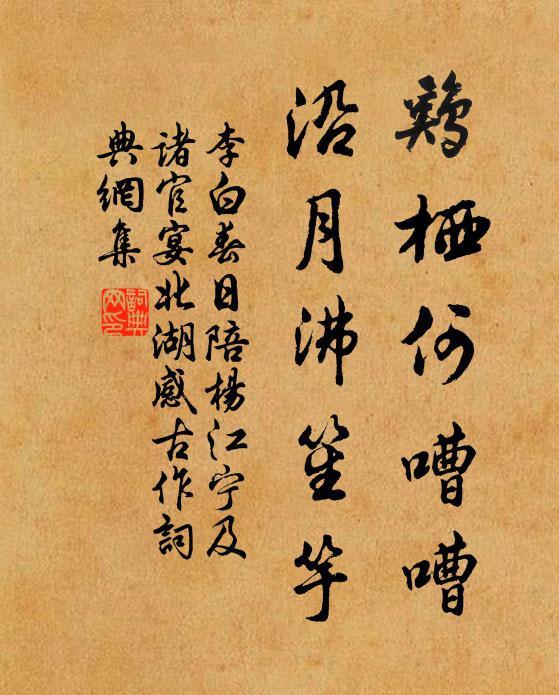 鷄栖何嘈嘈
沿月沸笙竽
李白春日陪楊江宁及
诸官宴北湖感古作詞
典網集
詞典
网印